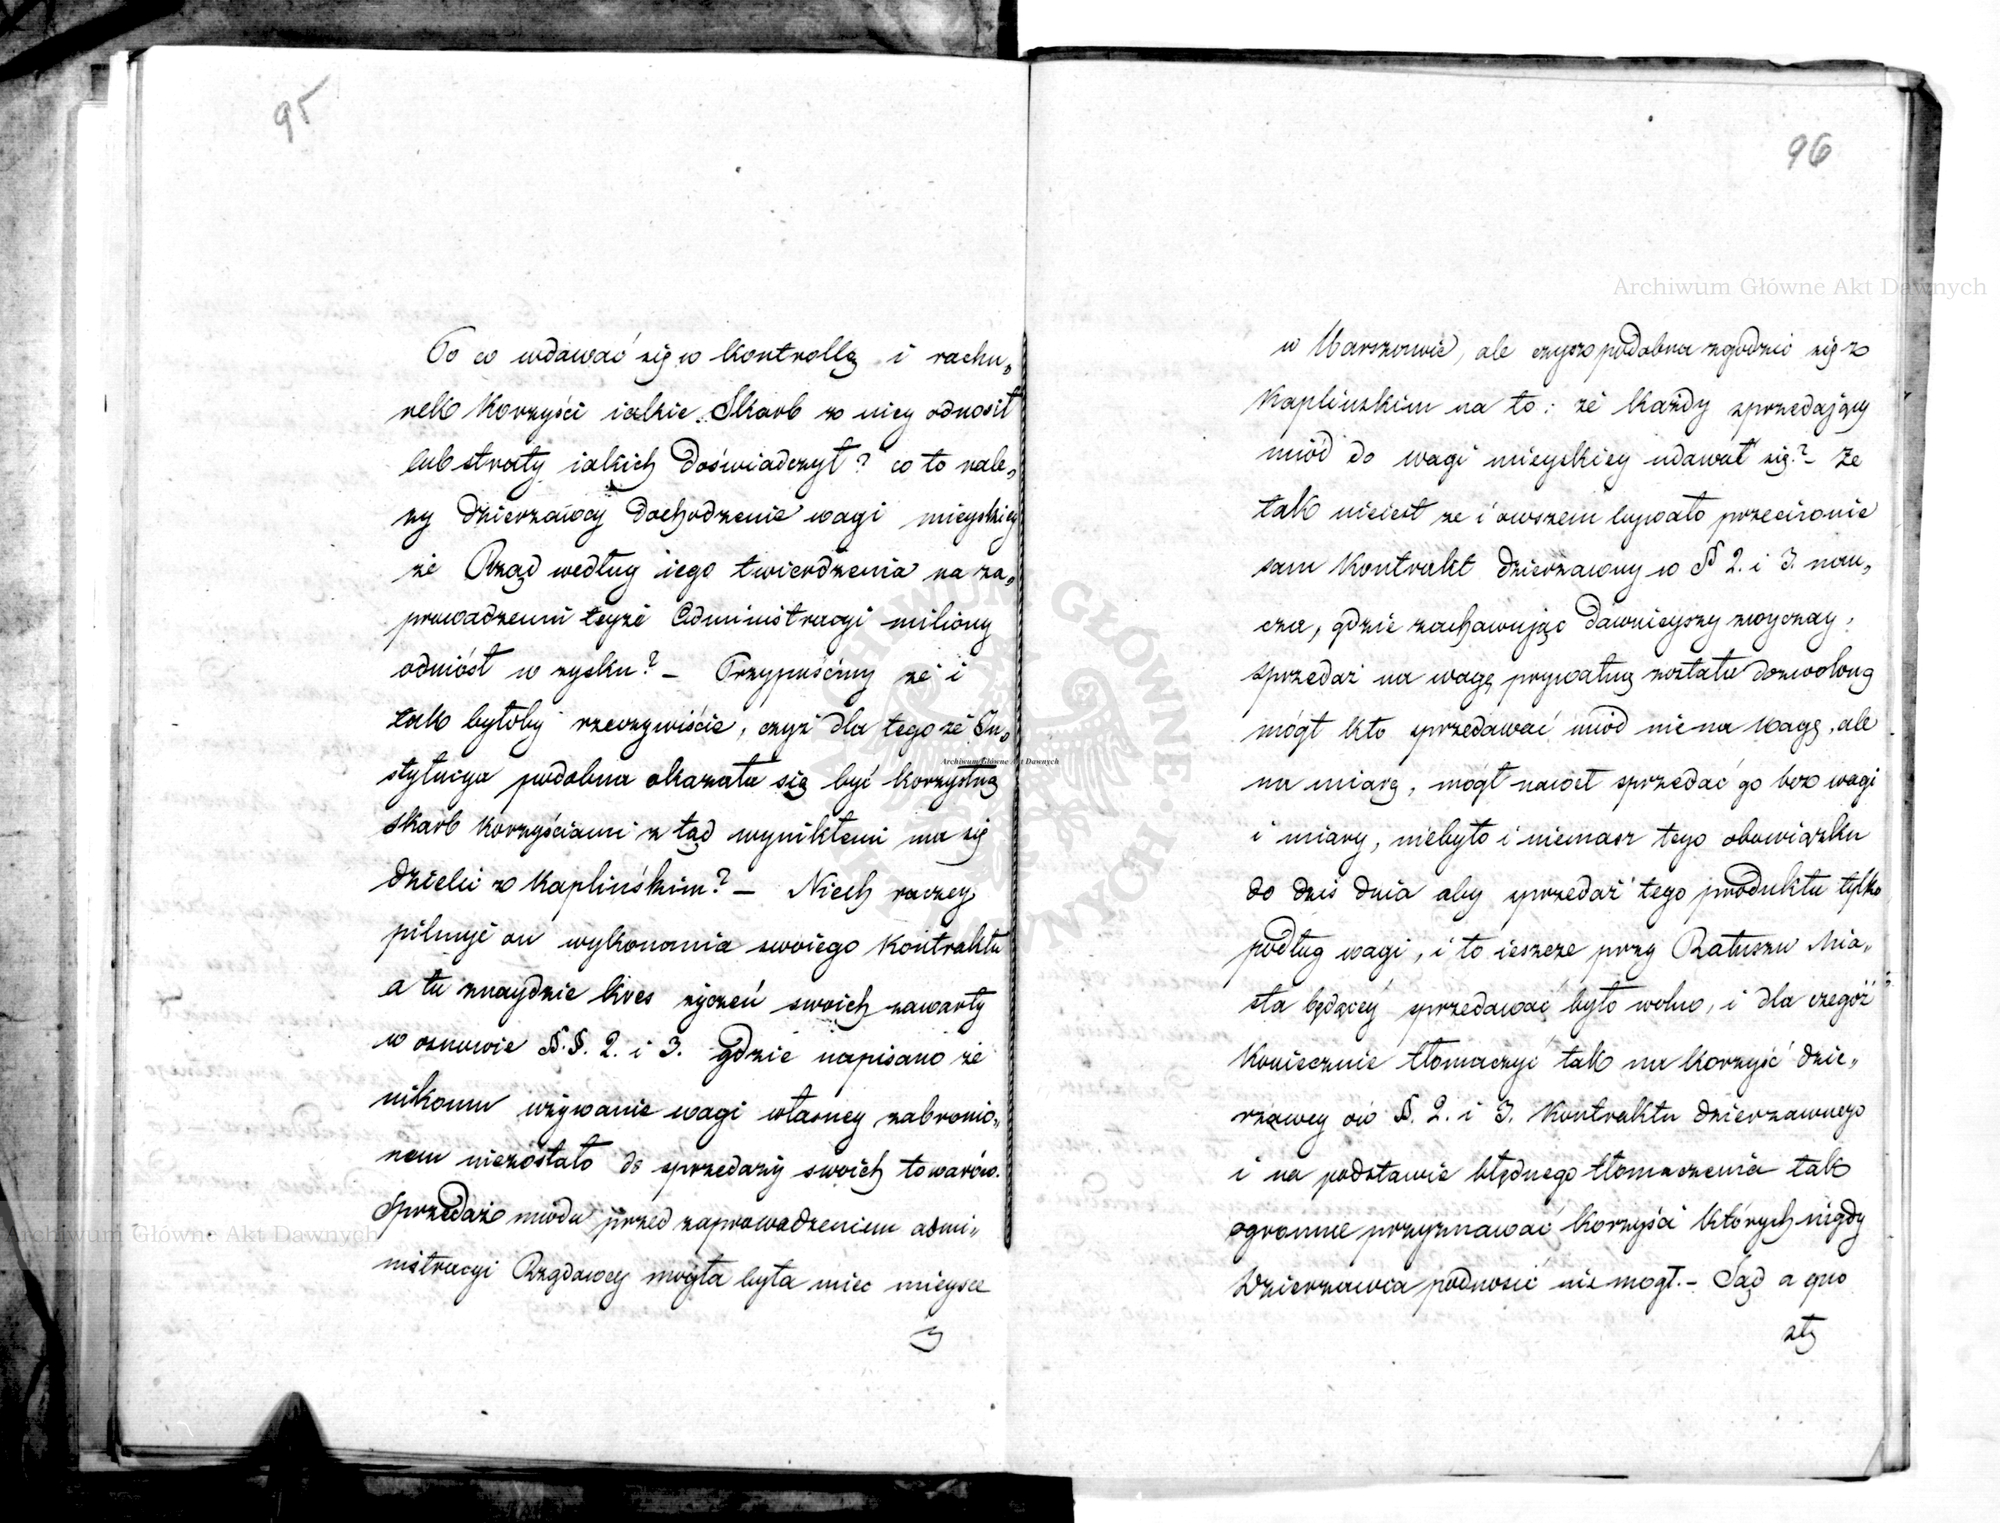 95
Po co wdawać się w kontrollę i rachu„
nek korzyści iakie Skarb z niey odnosił
lub straty iakich doświadczył? co to nale„
ży dzierzawcy dochodzenie wagi mieyskiey
że Rząd według iego twierdzenia na za„
prowadzeniu teyże Administracyi miliony
odniósł w zysku? – Przypuśćmy że i
tak byłoby rzeczywiście, czyż dla tego że In„
stytucya podobna okazała się być korzystną
skarb korzyściami z tąd wynikłemi ma się
dzielić z Kaplińskim? – Niech raczey
pilnuje on wykonania swoiego Kontraktu
a tu znaydzie kres życzeń swoich zawarty
w osnowie §.§. 2. i 3. gdzie napisano że
nikomu używanie wagi własney zabronio„
nem niezostało do sprzedaży swoich towarów.
Sprzedaż miodu przed zaprowadzeniem admi„
nistracyi Rządowey mogła była miec mieysce
w
96
w Warszawie, ale czyż podobna zgodzić się z
Kaplinskim na to: że każdy sprzedający
miód do wagi mieyskiey udawał się? – Że
tak nieiest że i owszem bywało przeciwnie
sam Kontrakt dzierzawny w § 2. i 3. nau„
cza, gdzie zachawując dawnieyszy zwyczay,
sprzedaż na wagę prywatną została dozwoloną
mógł kto sprzedawać miód nie na wagę, ale
na miarę, mógł nawet sprzedać go bez wagi
i miary, niebyło i niemasz tego obowiązku
do dziś dnia aby sprzedaż tego produktu tylko
podług wagi, i to ieszcze przy Ratuszu Mia„
sta będącey sprzedawać było wolno, i dla czegóż
koniecznie tłomaczyć tak na korzyść dzie„
rzawcy ów §. 2. i 3. Kontraktu dzierzawnego
i na podstawie błędnego tłomaczenia tak
ogromne przyznawać korzyści których nigdy
Dzierzawca podnosić nie mogł. – Sąd a quo
Archiwum Główne Akt Dawnych
Archiwum Główne Akt Dawnych
Archiwum Główne Akt Dawnych
ARCHIWUM GŁÓWNE AKT DAWNYCH